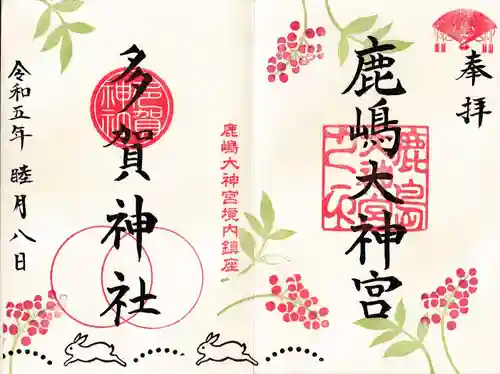 奉拝
鹿嶋大神宮
鹿島
鹿嶋大神宮境内鎮座
多賀神社
多賀
神社
令和五年 睦月八日